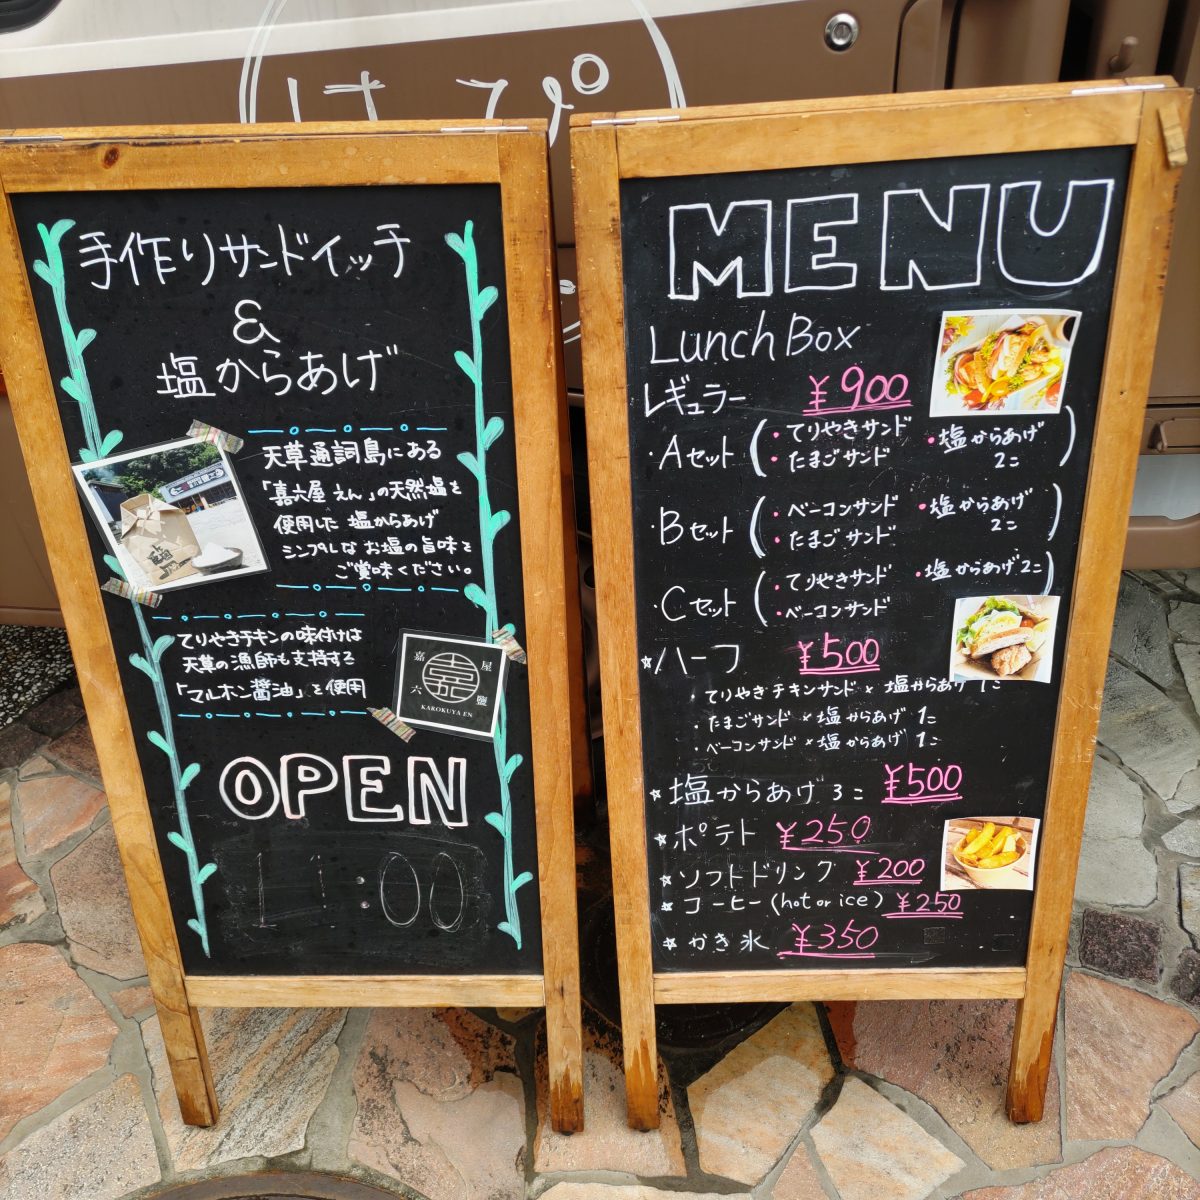 はっぴ
手作りサンドイッチ
&
塩からあげ
天草通詞島にある
「嘉六屋 えん」の天然塩を
使用した 塩からあげ
シンプルな お塩の旨味を
ご賞味ください。
てりやきチキンの味付けは
天草の漁師も支持する
「マルホン醤油」を使用
嘉 屋
六 鹽
KAROKUYA EN
OPEN
11:00
MENU
Lunch Box
レギュラー ¥900
・Aセット (・てりやきサンド ・塩からあげ
・たまごサンド 2コ )
・Bセット (・ベーコンサンド ・塩からあげ
・たまごサンド 2コ )
・Cセット (・てりやきサンド ・塩からあげ2コ
・ベーコンサンド )
☆ハーフ ¥500
・てりやきチキンサンド × 塩からあげ 1コ
・たまごサンド × 塩からあげ 1コ
・ベーコンサンド × 塩からあげ 1コ
☆塩からあげ 3コ ¥500
☆ポテト ¥250
☆ソフトドリンク ¥200
☆コーヒー(hot or ice) ¥250
☆かき氷 ¥350